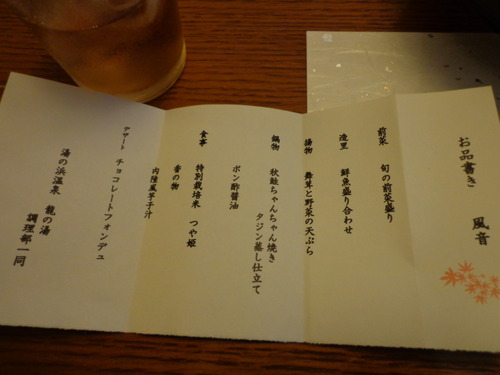 お品書き 風音
前菜 旬の前菜盛り
造里 鮮魚盛り合わせ
揚物 舞茸と野菜の天ぷら
鍋物 秋鮭ちゃんちゃん焼き
タジン蒸し仕立て
ポン酢醤油
食事 特別栽培米 つや姫
香の物
内陸風芋子汁
デザート チョコレートフォンデュ
湯の浜温泉 龍の湯
調理部一同